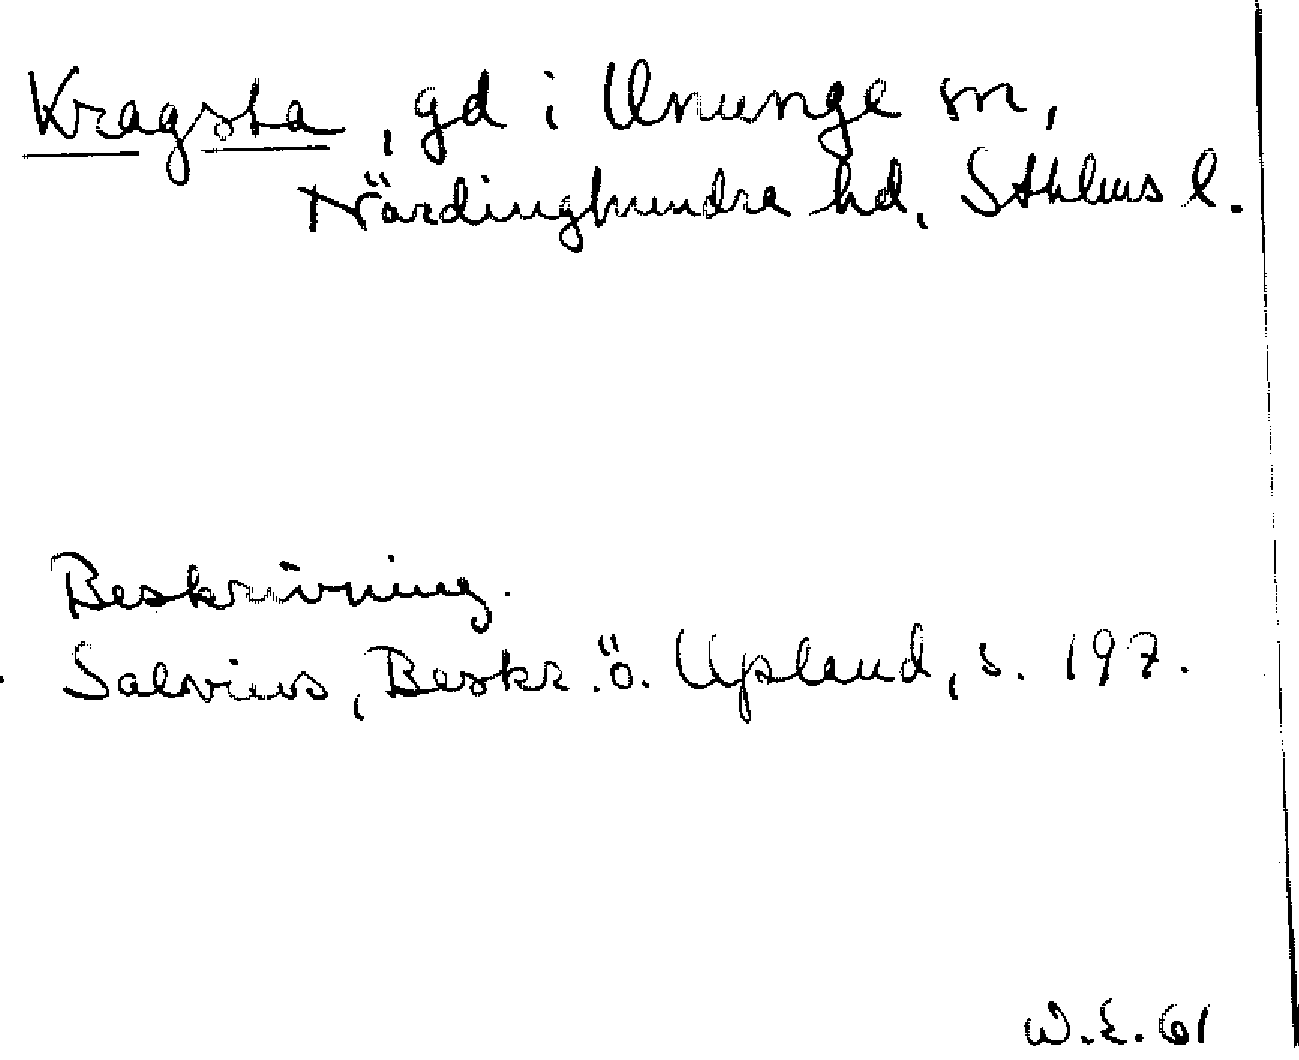 Kragsta, gd i Ununge sn,
Närdinghundra hd, Sthlms l.
Beskrivning.
Salvius, Beskr. ö. Upland, s. 197.
W.E. 61